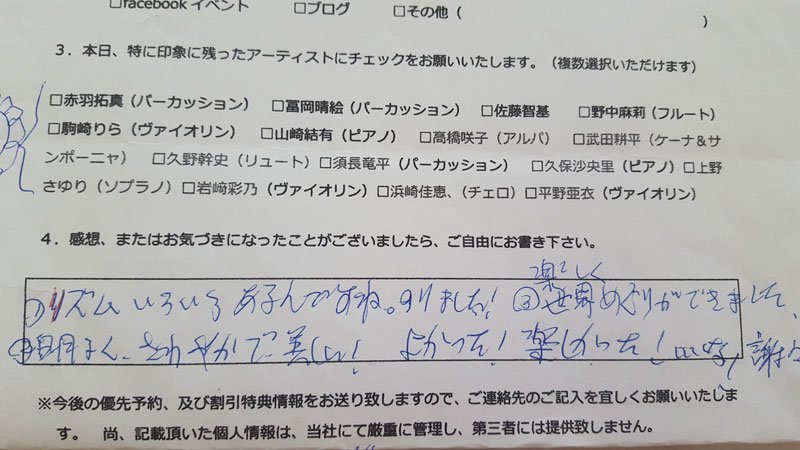 □facebook イベント □ブログ □その他( )
3．本日、特に印象に残ったアーティストにチェックをお願いいたします。（複数選択いただけます）
□赤羽拓真（パーカッション） □冨岡晴絵（パーカッション） □佐藤智基 □野中麻莉（フルート）
□駒崎りら（ヴァイオリン） □山崎結有（ピアノ） □高橋咲子（アルパ） □武田耕平（ケーナ＆サ
ンポーニャ） □久野幹史（リュート）□須長竜平（パーカッション） □久保沙央里（ピアノ）□上野
さゆり（ソプラノ）□岩﨑彩乃（ヴァイオリン）□浜崎佳恵、（チェロ）□平野亜衣（ヴァイオリン）
4．感想、またはお気づきになったことがございましたら、ご自由にお書き下さい。
楽しく
①リズムいろいろあるんですね。のりました！ ③世界めぐりができました、
さわやかで美しい！ よかった！楽しかった！
※今後の優先予約、及び割引特典情報をお送り致しますので、ご連絡先のご記入を宜しくお願いいたしま
す。 尚、記載頂いた個人情報は、当社にて厳重に管理し、第三者には提供致しません。